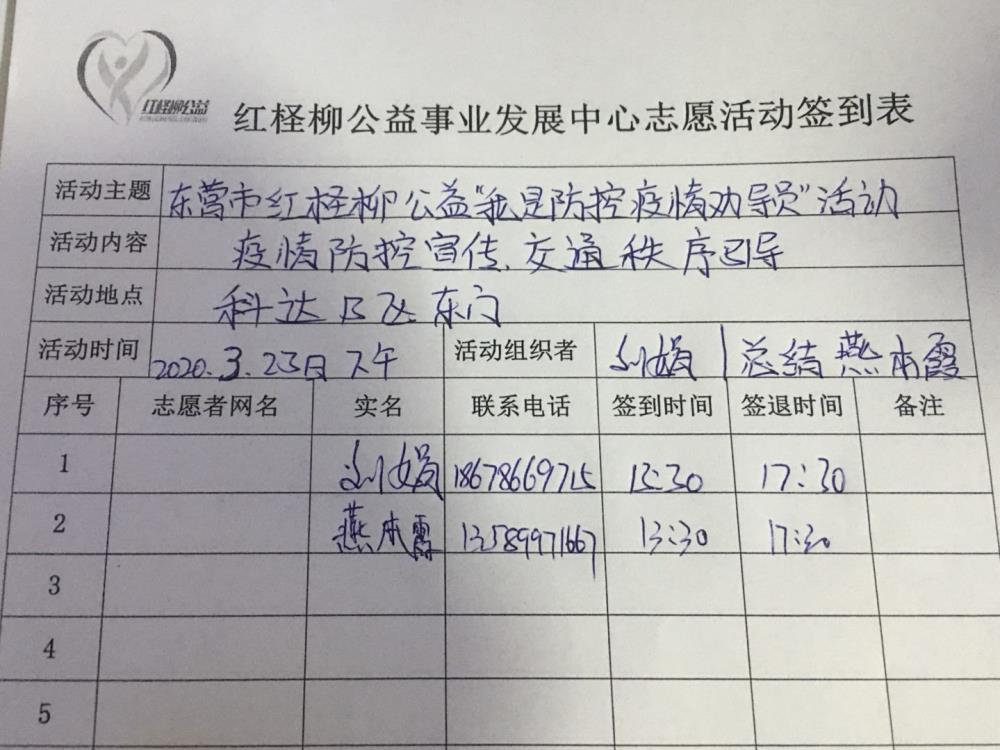 红柽柳公益
红柽柳公益事业发展中心志愿活动签到表
活动主题 东营市红柽柳公益“我是防控疫情劝导员”活动
活动内容 疫情防控宣传、交通秩序引导
活动地点 科达B区东门
活动时间 2020.3.23日下午 活动组织者 刘娟 总结 燕本霞
序号 志愿者网名 实名 联系电话 签到时间 签退时间 备注
1 刘娟 18678669715 13:30 17:30
2 燕本霞 13589971667 13:30 17:30
3
4
5